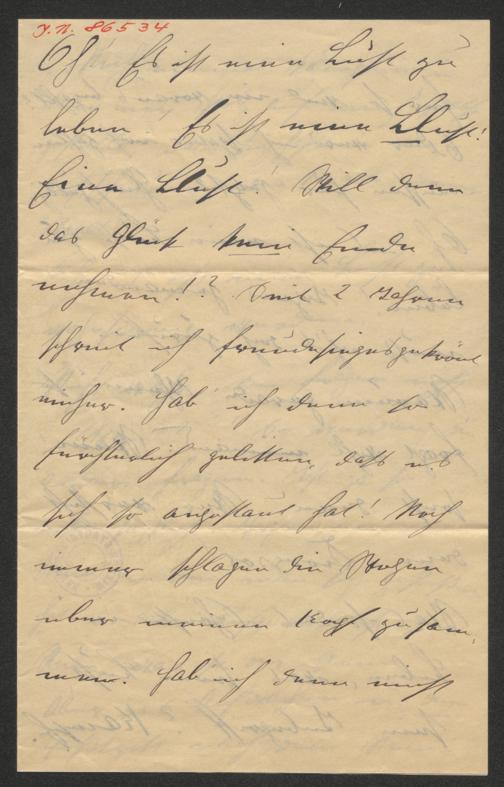 J.N. 86534
Oh Es ist eine Lust zu
leben Es ist eine LLust!
Eine LLust! Will denn
das Glück kein Ende
nehmen!? Seit 2 Jahren
schreit ich freudesiegesgekrönt
einher. Hab ich denn so
fürchterlich gelitten, daß es
sich so angestaut hat! Noch
immer schlagen die Wogen
über meinen Kopf zusam-
men. Hab ich denn nicht